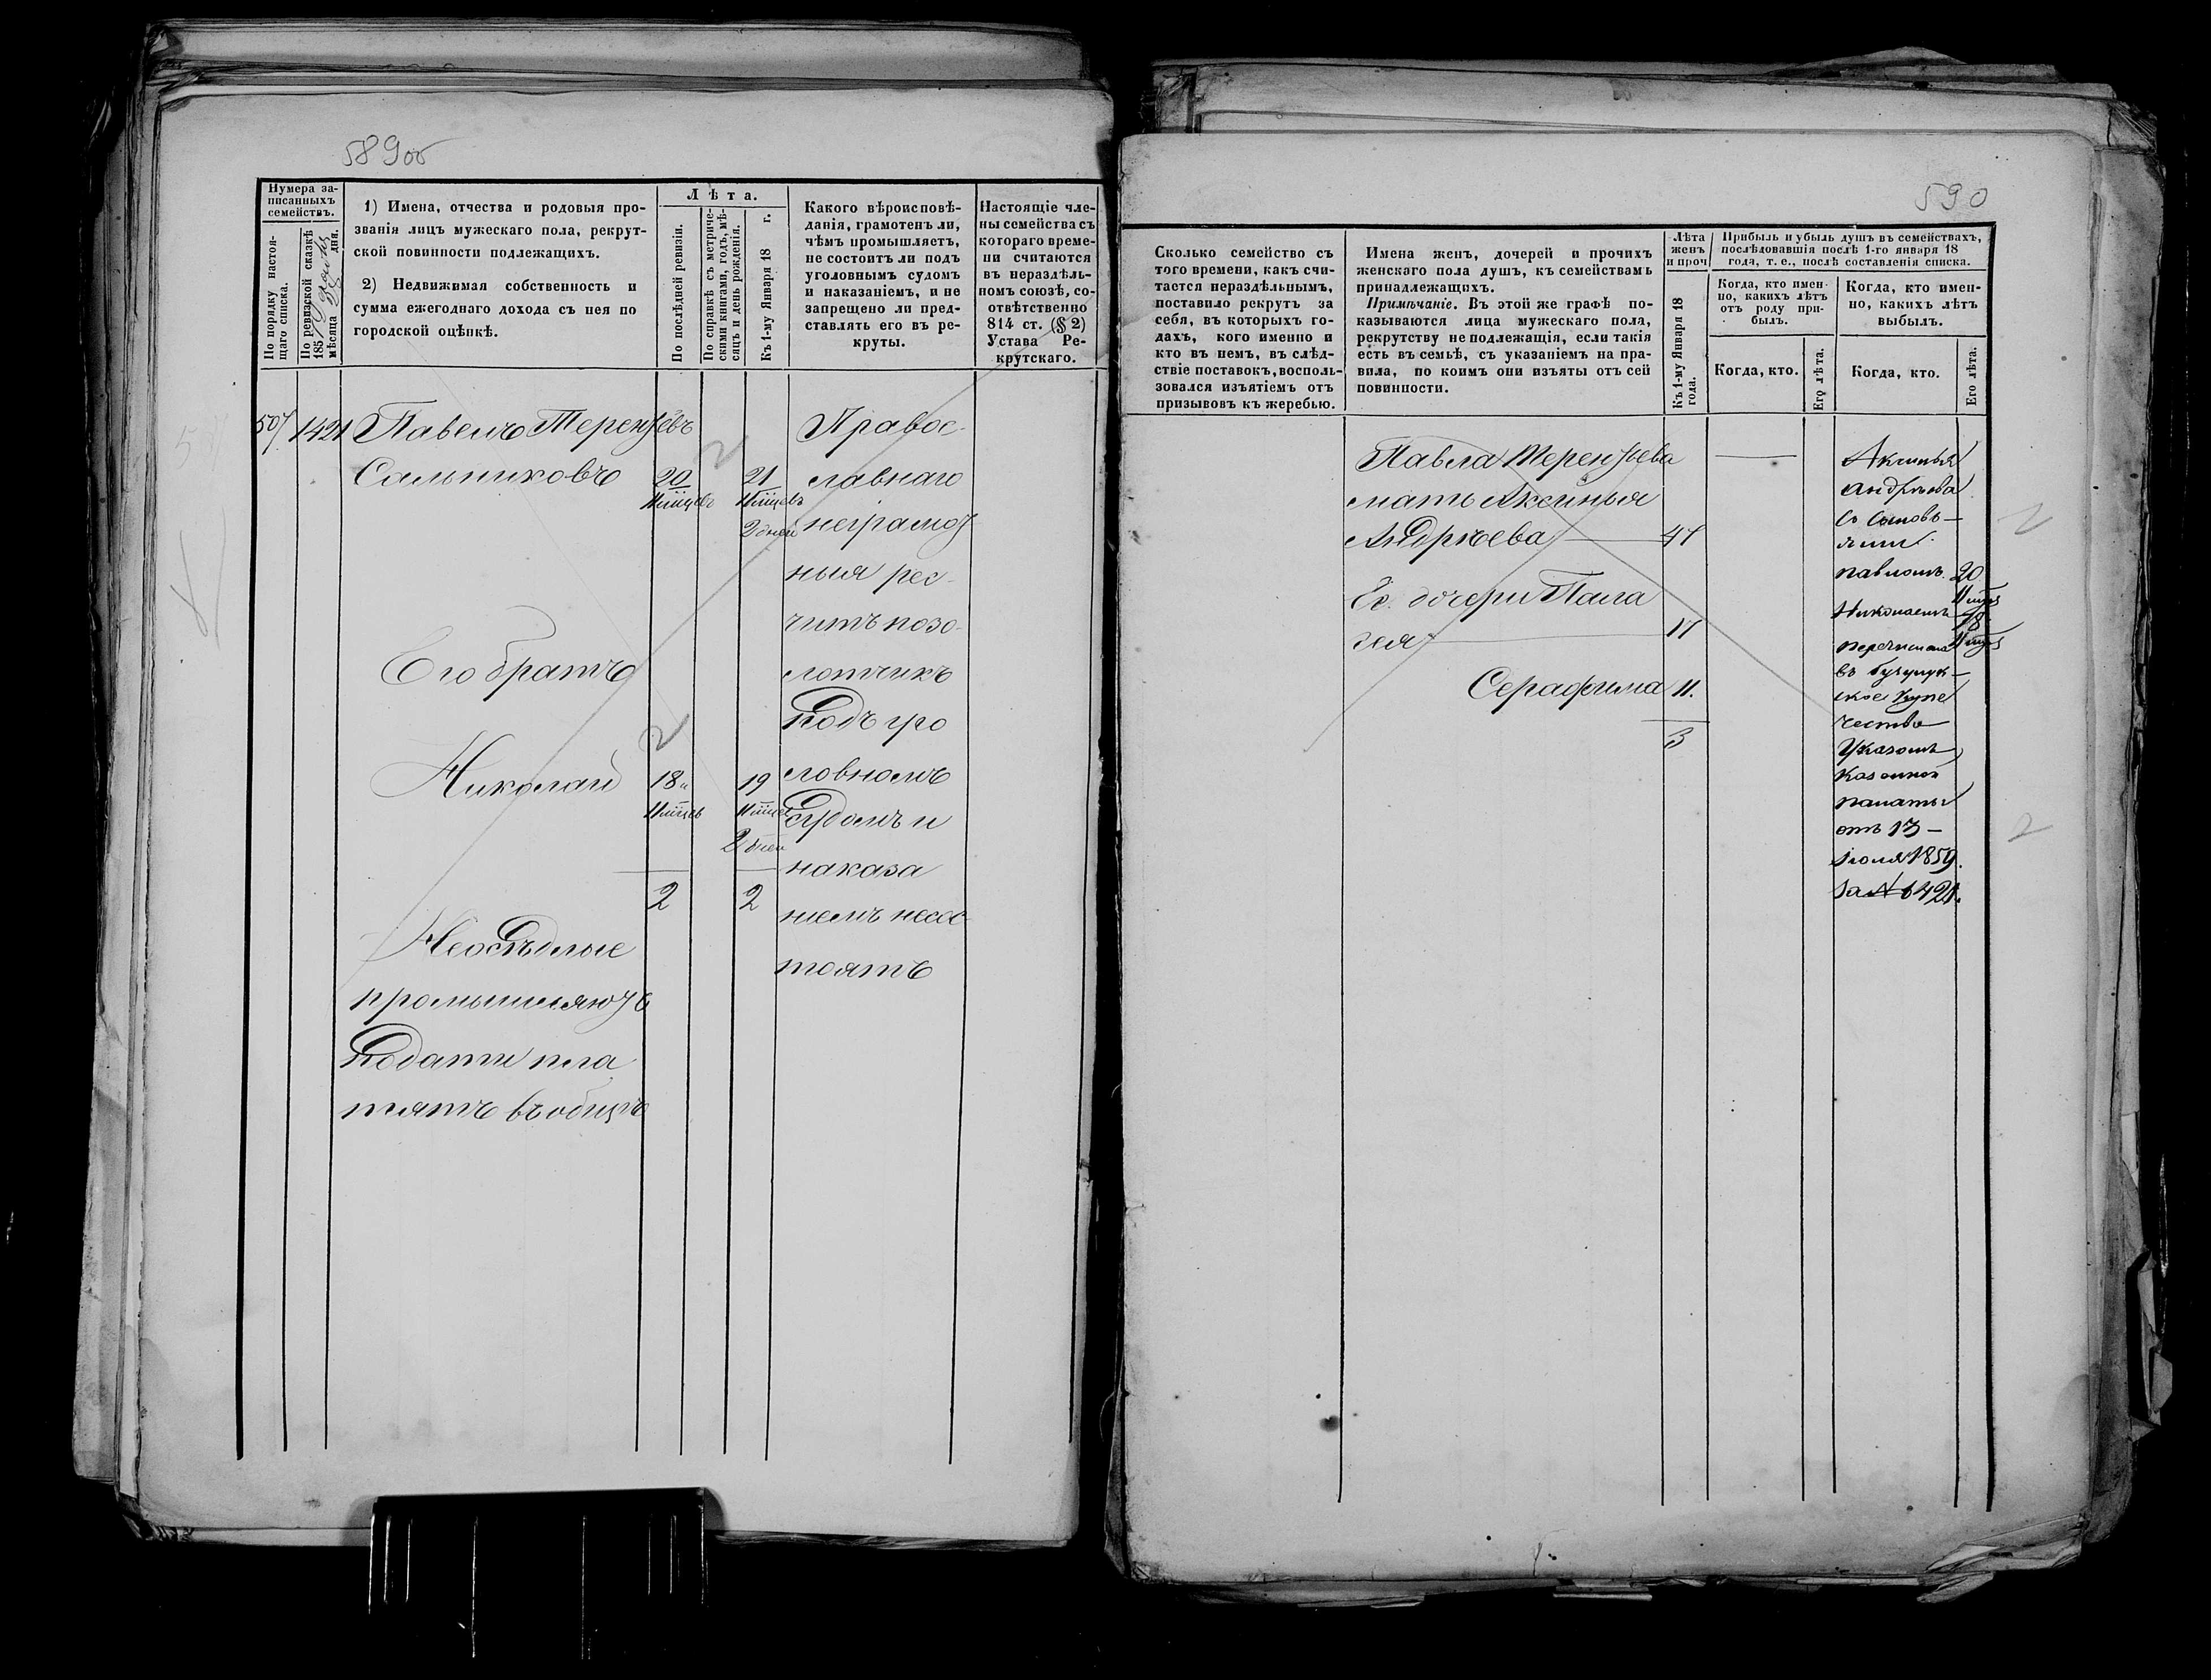 589об
Нумера за-
писанныхъ
семействъ.
По порядку настоя-
щаго списка.
По ревизской сказкѣ
185
мѣсяца 28 дня.
1) Имена, отчества и родовыя про-
званія лицъ мужескаго пола, рекрут-
ской повинности подлежащихъ.
2) Недвижимая собственность и
сумма ежегоднаго дохода съ нея по
городской оцѣнкѣ.
Лѣта.
По послѣдней ревизіи.
По справкѣ съ метриче-
скими книгами, годъ, мѣ-
сяцъ и день рожденія.
Къ 1-му Января 18 г.
Какого вѣроисповѣ-
данія, грамотенъ ли,
чѣмъ промышляетъ,
не состоитъ ли подъ
уголовнымъ судомъ
и наказаніемъ, и не
запрещено ли пред-
ставлять его въ ре-
круты.
Настоящіе чле-
ны семейства съ
котораго време-
ни считаются
въ нераздѣль-
номъ союзѣ, со-
отвѣтственно
814 ст. (§ 2)
Устава Ре-
крутскаго.
507 1421 Павелъ Терентьевъ
Сальниковъ 20 21
11 мцевъ 11 мцевъ
2 дней
Его братъ
Николай 18 19
11 мцевъ 11 мцев
2 дней
2 2
Неосѣдлые
промышляютъ
Подати пла
тятъ въ общъ
Правос-
лавнаго
неграмот
ныя рес-
читъ позо-
лотчикъ
Подъ уго
ловномъ
Судомъ и
наказа
ніемъ несос-
тоятъ
590
Сколько семейство съ
того времени, какъ счи-
тается нераздѣльнымъ,
поставило рекрутъ за
себя, въ которыхъ го-
дахъ, кого именно и
кто въ немъ, въ слѣд-
ствіе поставокъ, восполь-
зовался изъятіемъ отъ
призывовъ къ жеребью.
Имена женъ, дочерей и прочихъ
женскаго пола душъ, къ семействамъ
принадлежащихъ.
Примѣчаніе. Въ этой же графѣ по-
казываются лица мужескаго пола,
рекрутству не подлежащія, если такія
есть въ семьѣ, съ указаніемъ на пра-
вила, по коимъ они изъяты отъ сей
повинности.
Лѣта
женъ
и проч
Къ 1-му Января 18
года.
Прибыль и убыль душъ въ семействахъ,
послѣдовавшія послѣ 1-го января 18
года, т. е., послѣ составленія списка.
Когда, кто имен-
но, какихъ лѣтъ
отъ роду при-
былъ.
Когда, кто имен-
но, какихъ лѣтъ
выбылъ.
Когда, кто.
Его лѣта.
Когда, кто.
Его лѣта.
Павла Терентьева
мать Аксинья
Андрѣева 47
Ее дочери Пала
гея 17
Серафима 11.
3
Аксинья
Андрѣева
Съ Сыновь-
ями
Павломъ 20
11 мцъ
Николаемъ 18
11 мцъ
перечислена
въ бузулук-
ское купе
чество
Указомъ
Казенной
палаты
отъ 13-
Іюля 1859.
За № 6421.
2
2